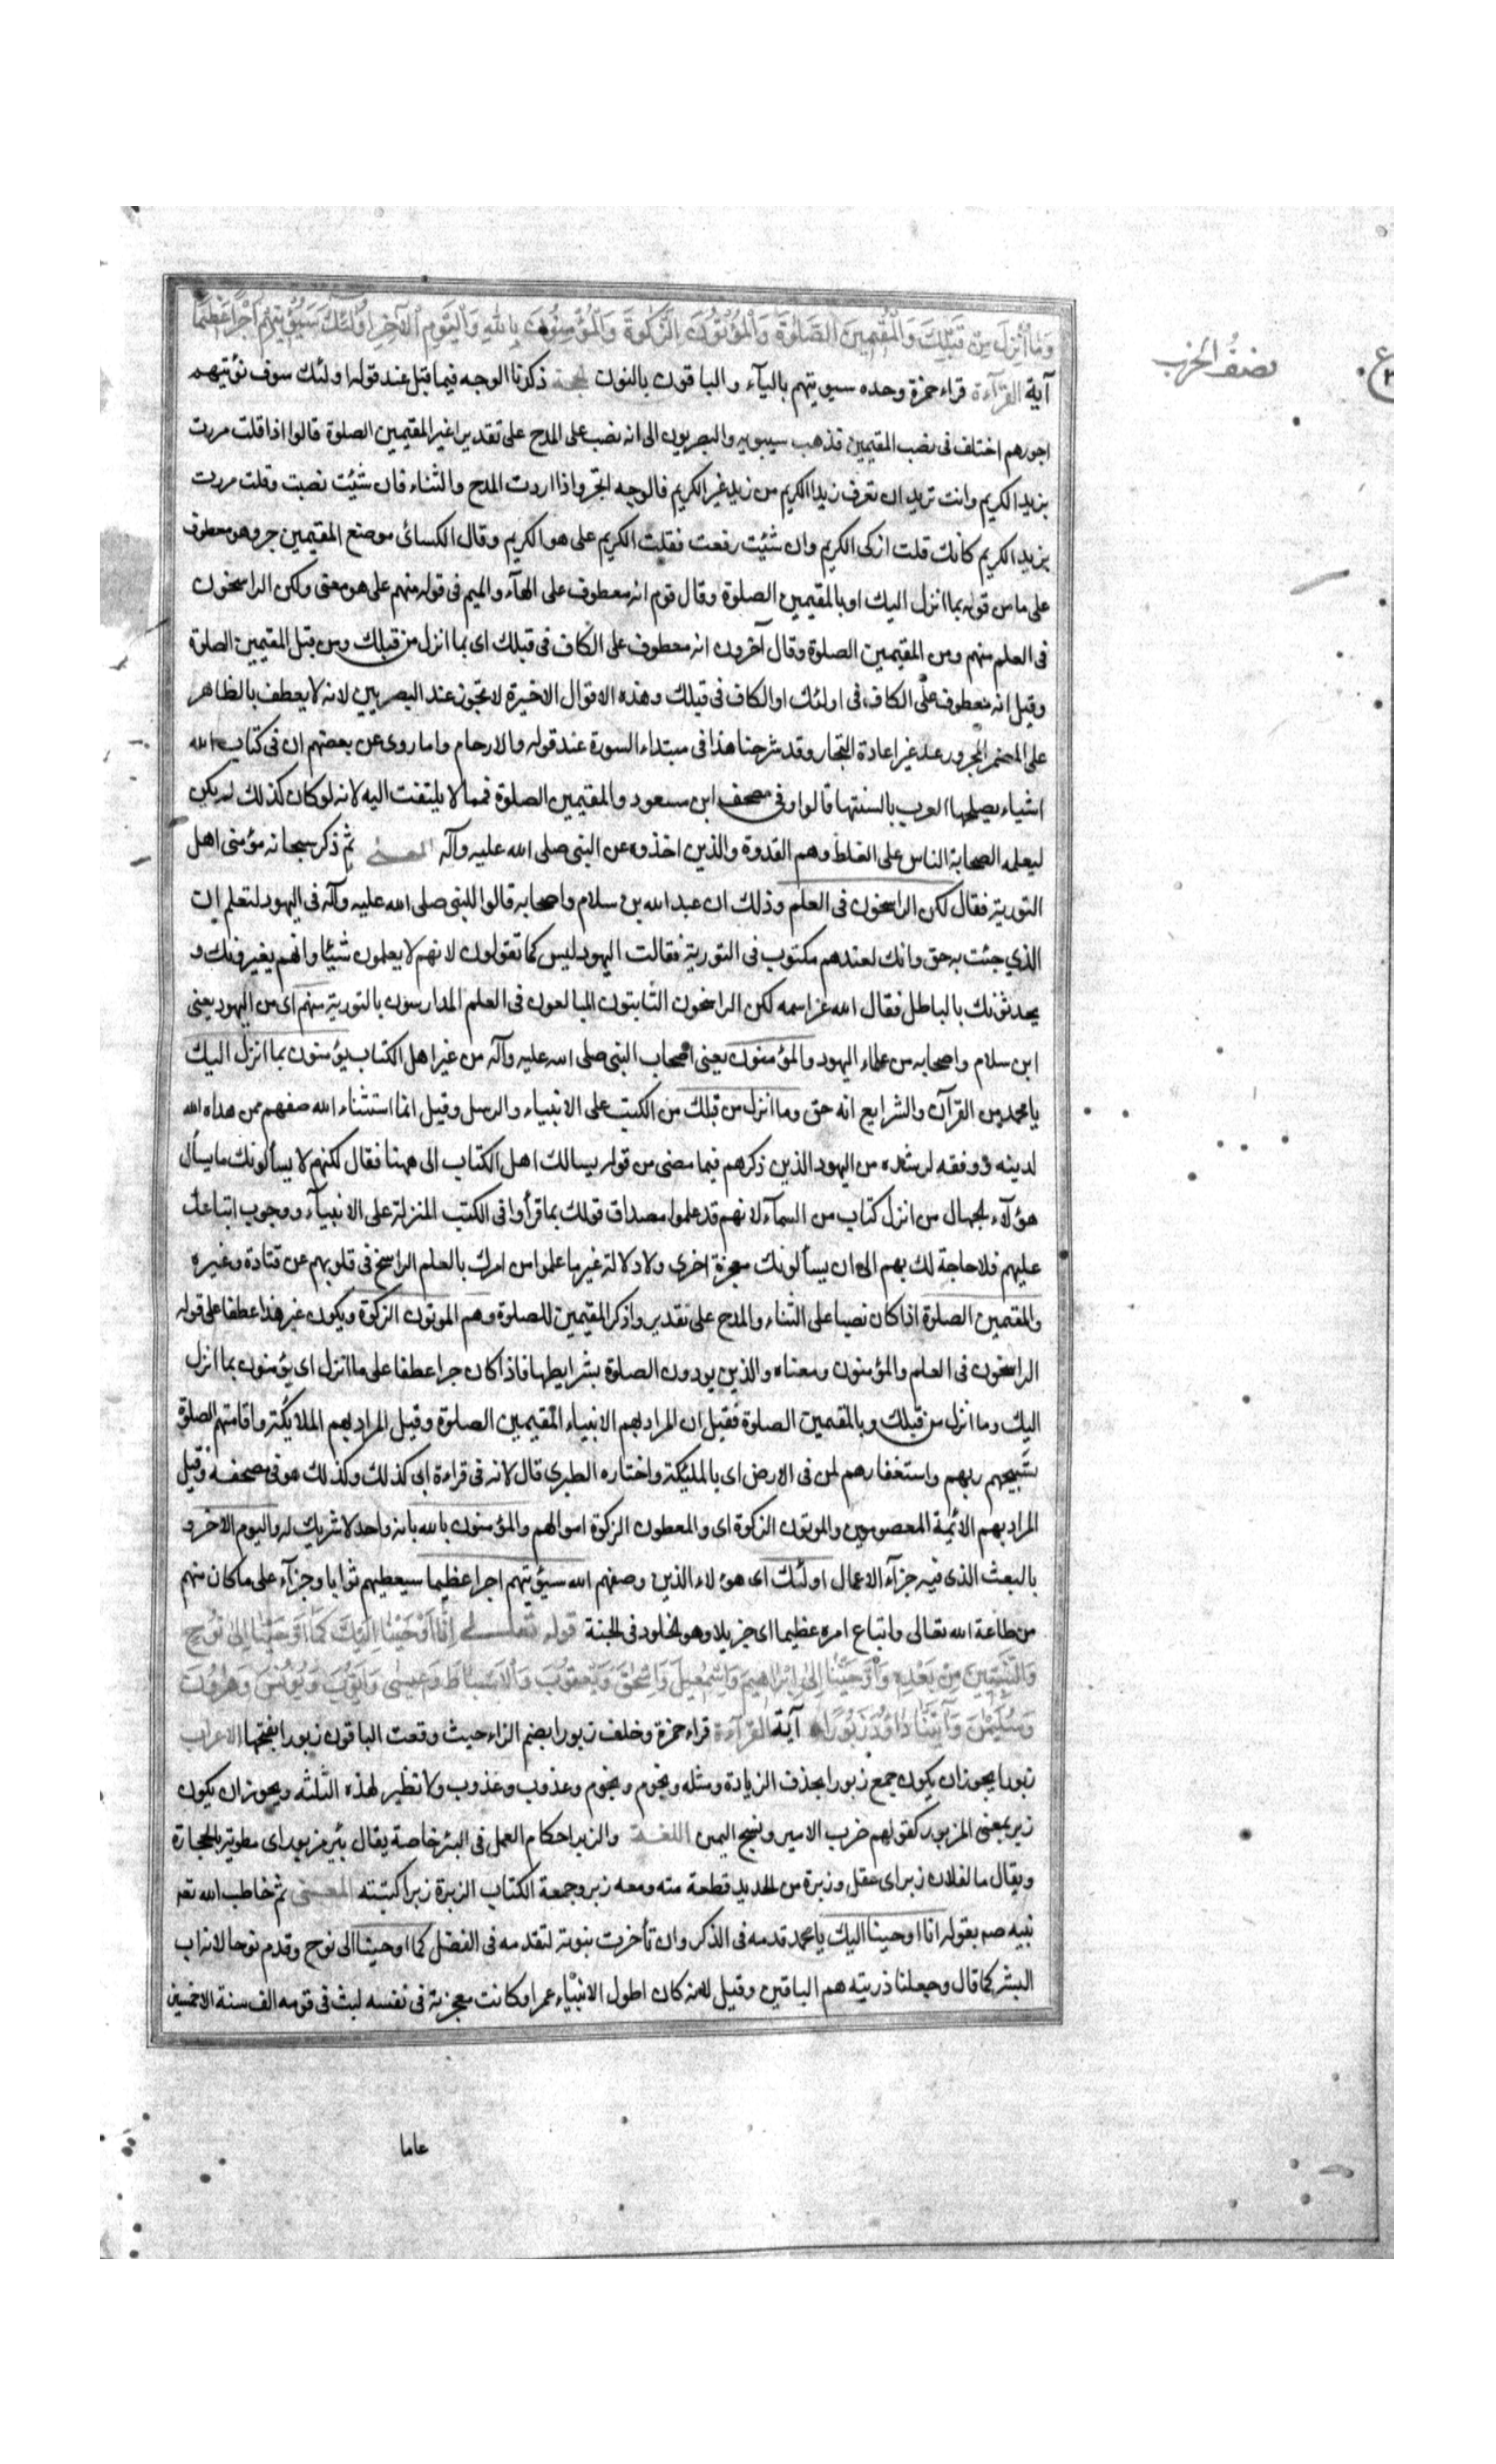 وَمَا أُنْزِلَ مِنْ قَبْلِكَ وَالْمُقِيمِينَ الصَّلٰوةَ وَالْمُؤْتُونَ الزَّكٰوةَ وَالْمُؤْمِنُونَ بِاللّٰهِ وَالْيَوْمِ الْآخِرِ اُولٰئِكَ سَيُؤْتِيهِمْ اَجْرًا عَظِيمًا
آية القرآءة قراء حمزة وحده سيوتيهم باليآء والباقون بالنون الحجة ذكرنا الوجه فيما قبل عند قوله اولئك سوف نؤتيهم
اجورهم اختلف فى نصب المقيمين فذهب سيبويه والبصريون الى انه نصب على المدح على تقدير اعنى المقيمين الصلوة قالوا اذا قلت مررت
بزيد الكريم وانت تريد ان تعرف زيدا الكريم من زيد غير الكريم فالوجه الجر واذا اردت المدح والثناء فان شئت نصبت وقلت مررت
بزيد الكريم كأنك قلت اذكر الكريم وان شئت رفعت فقلت الكريم على هو الكريم وقال الكسائى موضع المقيمين جر وهو معطوف
على ما من قوله بما انزل اليك او بالمقيمين الصلوة وقال قوم انه معطوف على الهآء والميم فى قوله منهم على هو معنى ولكن الراسخون
فى العلم منهم ومن المقيمين الصلوة وقال آخرون انه معطوف على الكاف فى قبلك اى بما انزل من قبلك ومن قبل المقيمين الصلوة
وقيل انه معطوف على الكاف فى اولئك او الكاف فى قبلك وهذه الاقوال الاخيرة لا تجوز عند البصريين لانه لا يعطف بالظاهر
على المضمر المجرور عند غير اعادة الجار وقد شرحنا هذا فى مبتداء السورة عند قوله والارحام واما روى عن بعضهم ان فى كتاب الله
اشياء يصلحها العرب بالسنتها قالوا وفى مصحف ابن مسعود والمقيمين الصلوة فمما لا يلتفت اليه لانه لو كان كذلك لم يكن
ليعلمه الصحابة الناس على الغلط وهم القدوة والذين اخذوه عن النبى صلى الله عليه وآله المعنى ثم ذكر سبحانه مؤمنى اهل
التورية فقال لكن الراسخون فى العلم وذلك ان عبد الله بن سلام واصحابه قالوا للنبى صلى الله عليه وآله فى اليهود لتعلم ان
الذي جئت به حق وانك لعندهم مكتوب فى التورية فقالت اليهود ليس كما تقولون لانهم لا يعلمون شيئا وانهم يغيرونك و
يحدثونك بالباطل فقال الله عز اسمه لكن الراسخون الثابتون المبالغون فى العلم المدارسون بالتورية منهم اى من اليهود يعنى
ابن سلام واصحابه من علماء اليهود والمؤمنون يعنى اصحاب النبى صلى الله عليه وآله من غير اهل الكتاب يؤمنون بما انزل اليك
يا محمد من القرآن والشرايع انه حق وما انزل من قبلك من الكتب على الانبياء والرسل وقيل انما استثناء الله صفهم ممن هداه الله
لدينه ووفقه لرشده من اليهود الذين ذكرهم فيما مضى من قوله يسالك اهل الكتاب الى ههنا فقال لكنهم لا يسألونك ما يسأل
هؤلآء الجهال من انزل كتاب من السمآء لانهم قد علموا مصداق قولك بما قرأوا فى الكتب المنزلة على الانبيآء ووجوب اتباعك
عليهم فلا حاجة لك بهم الى ان يسألونك معجزة اخرى ولا دلالة غير ما علموا من امرك بالعلم الراسخ فى قلوبهم عن قتادة وغيره
والمقيمين الصلوة اذا كان نصبا على الثناء والمدح على تقدير واذكر المقيمين للصلوة وهم الموتون الزكوة ويكون غير هذا عطفا على قوله
الراسخون فى العلم والمؤمنون ومعناه والذين يودون الصلوة بشرايطها فاذا كان جرا عطفا على ما انزل اى يؤمنون بما انزل
اليك وما انزل من قبلك وبالمقيمين الصلوة فقيل ان المراد بهم الانبياء المقيمين الصلوة وقيل المراد بهم الملايكة واقامتهم الصلوة
تسبيحهم ربهم واستغفارهم لمن فى الارض اى بالمليكة واختاره الطبرى قال لانه فى قراءة ابى كذلك وكذلك هو فى مصحفه وقيل
المراد بهم الائمة المعصومين والموتون الزكوة اى والمعطون الزكوة اموالهم والمؤمنون بالله بانه واحد لا شريك له واليوم الاخر و
بالبعث الذى فيه جزآء الاعمال اولئك اى هولاء الذين وصفهم الله سيؤتيهم اجرا عظيما سيعطيهم ثوابا وجزآء على ما كان منهم
من طاعة الله تعالى واتباع امره عظيما اى جزيلا وهو الخلود فى الجنة قوله تعالى اِنَّا اَوْحَيْنَا اِلَيْكَ كَمَا اَوْحَيْنَا اِلٰى نُوحٍ
وَالنَّبِيِّينَ مِنْ بَعْدِهِ وَاَوْحَيْنَا اِلٰى اِبْرَاهِيمَ وَاِسْمٰعِيلَ وَاِسْحٰقَ وَيَعْقُوبَ وَالْاَسْبَاطِ وَعِيسٰى وَاَيُّوبَ وَيُونُسَ وَهٰرُونَ
وَسُلَيْمٰنَ وَآتَيْنَا دَاوُدَ زَبُورًا آية القرآءة قراء حمزة وخلف زبورا بضم الزاء حيث وقعت الباقون زبورا بفتحها الاعراب
زبورا يجوز ان يكون جمع زبور بحذف الزيادة ومثله وتخوم وتخوم وعذوب وعذوب ولا نظير لهذه الثلثه ويجوز ان يكون
زبر بمعنى المزبور كقولهم ضرب الامير ونسج اليمن اللغة والزبر احكام العمل فى البئر خاصة يقال بئر مزبور اى مطوية بالحجارة
ويقال ما لفلان زبر اى عقل وزبرة من الحديد قطعة منه ومعه زبر وجمعة الكتاب الزبرة زبرا كتبته المعنى ثم خاطب الله تعه
نبيه صم بقوله انا اوحينا اليك يا محمد قدمه فى الذكر وان تأخرت نبوته لتقدمه فى الفضل كما اوحينا الى نوح وقدم نوحا لانه اب
البشر كما قال وجعلنا ذريته هم الباقين وقيل لانه كان اطول الانبياء عمرا وكانت معجزته فى نفسه لبث فى قومه الف سنة الا خمسين
عاما
نصف الحزب